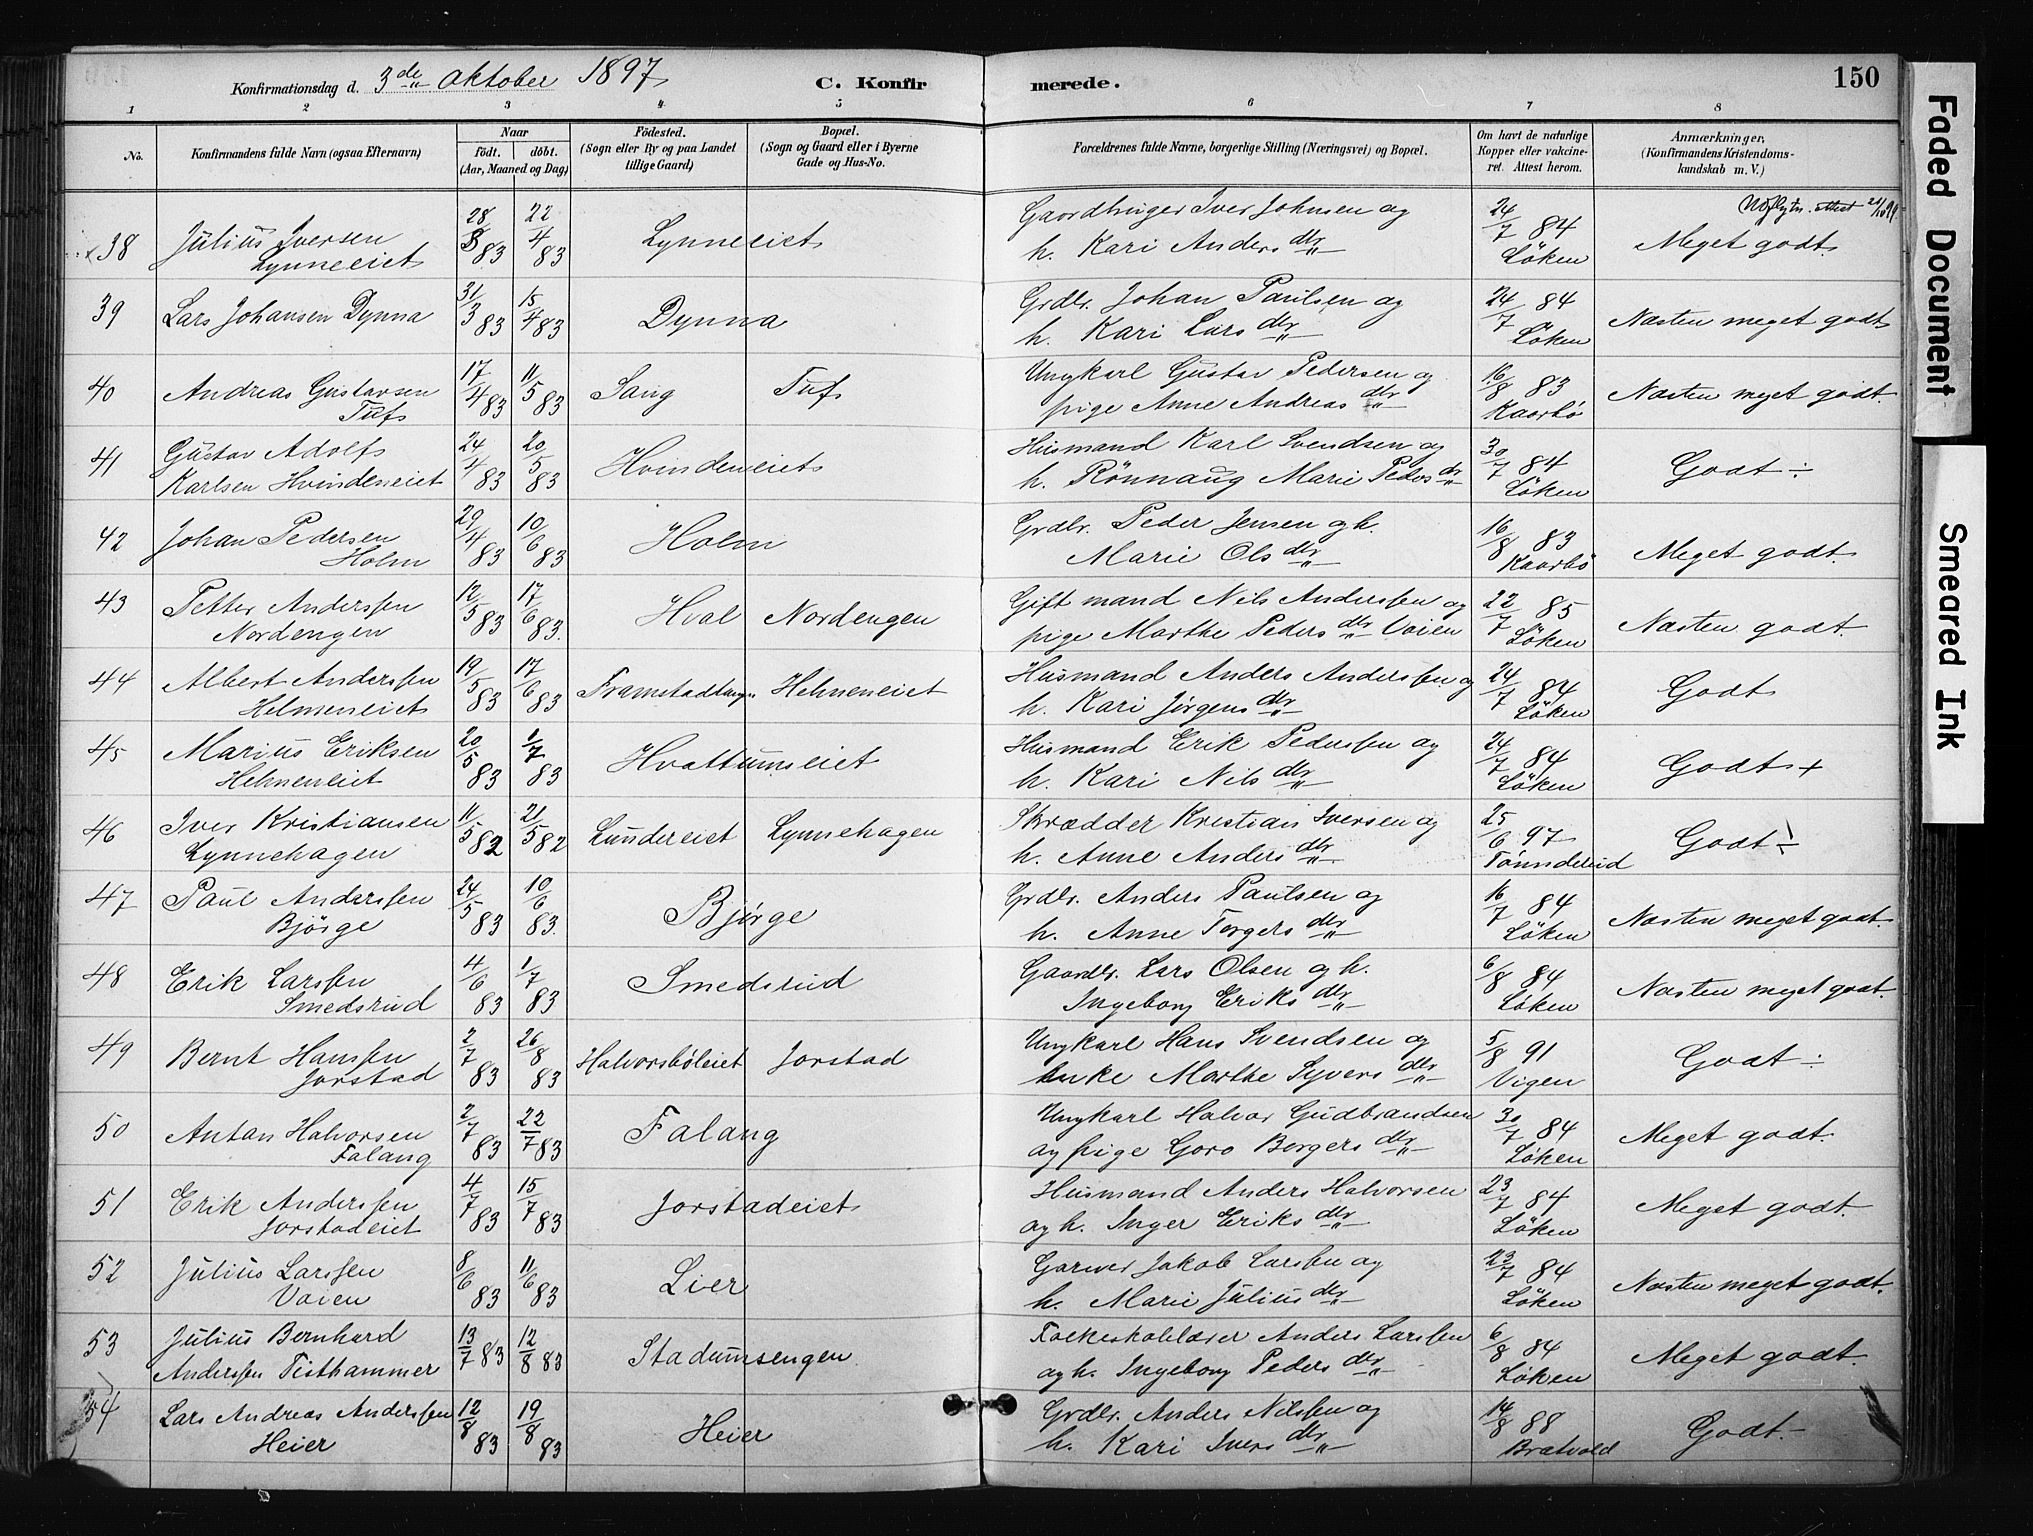 Konfirmationsdag d. 3de oktober 1897
C. Konfirmerede.
150
1 2 3 4 5 6 7 8
No.
Konfirmandens fulde Navn (ogsaa Efternavn)
Naar
født. døbt.
(Aar, Maaned og Dag)
Fødested.
(Sogn eller By og paa Landet tillige Gaard)
Bopæl.
(Sogn og Gaard eller i Byerne Gade og Hus-No.
Forældrenes fulde Navne, borgerlige Stilling (Næringsvei) og Bopæl.
Om havt de naturlige Kopper eller vakcineret. Attest herom.
Anmærkninger,
(Konfirmandens Kristendomskundskab m. V.)
38 Julius Iversen Lynneeiet 28/3 83 22/4 83 Lynneeiet Gaardbruger Iver Johnsen og h. Kari Anders dtr 24/7 84 Löken Meget godt.
39 Lars Johansen Dynna 31/3 83 15/4 83 Dynna Grdbr. Johan Paulsen og h. Kari Lars dtr 24/7 84 Löken Næsten meget godt
40 Andreas Gustavsen Tufs 17/4 83 11/5 83 Sang Tufs Ungkarl Gustav Pedersen og pige Anne Andreas dtr 16/8 83 Kaarbö Næsten meget godt.
41 Gustav Adolf Karlsen Hvindeneiet 24/4 83 20/5 83 Hvindeneiet Husmand Karl Svendsen og h. Rönnaug Marie Peders dtr 30/7 84 Löken Godt ÷
42 Johan Pedersen Holm 29/4 83 10/6 83 Holm Grdbr. Peder Jensen og h. Marie Ols dtr 16/8 83 Kaarbö Meget godt.
43 Petter Anderssen Nordengen 12/5 83 17/6 83. Hval Nordengen Gift mand Nils Anderssen og pige Marthe Peders dtr Vaien 22/7 85 Löken Næsten godt.
44 Albert Anderssen Helmeneiet 19/5 83 17/6 83 Helmeneiet Husmand Anders Anderssen og h. Kari Jörgens dtr 24/7 84 Löken Godt
45 Marius Eriksen Helmeneiet 20/5 83 1/7 83 Hvattumseiet Husmand Erik Pederssen og h. Kari Nils dtr 24/7 84 Löken Godt +
46 Iver Kristiansen Lynnehagen 11/5 82 21/5 82 Lundereiet Lynnehagen Skrædder Kristian Iversen og h. Anne Anders dtr 25/6 97 Tønnderud Godt ÷
47 Paul Anderssen Bjørge 24/5 83 10/6 83. Bjørge Grdbr. Anders Paulsen og h. Anne Torgers dtr 16/7 84 Löken Næsten meget godt.
48 Erik Larssen Smedsrud 4/6 83 1/7 83 Smedsrud Gaardbr. Lars Olsen og h. Ingeborg Eriks dtr 6/8 84 Löken Næsten meget godt.
49 Bernt Hanssen Jorstad 2/7 83 26/8 83 Halvorsböleiet Jorstad Ungkarl Hans Svendsen og enke Marthe Syvers dtr 5/8 91 Vigen Godt ÷
50 Anton Halvorsen Falang 2/7 83 22/7 83 Falang Ungkarl Halvor Gudbrandsen og pige Goro Borgers dtr 30/7 84 Löken Meget godt.
51 Erik Anderssen Jorstadeiet 4/7 83 15/7 83 Jorstadeiet Husmand Anders Halvorsen og h. Inger Eriks dtr 23/7 84 Löken Meget godt.
52 Julius Larssen Vaien 8/6 83 11/6 83 Lier Garver Jakob Larssen og h. Marie Julius dtr 23/7 84 Löken Næsten meget godt.
53 Julius Bernhard Anderssen Tisthammer 13/7 83 12/8 83 Stadumsengen Folkeskolelærer Anders Larssen og h. Ingeborg Peders dtr 6/8 84 Löken Meget godt.
54 Lars Andreas Anderssen Heier 12/8 83 19/8 83 Heier Grdbr. Anders Nilssen og h. Kari Ivers dtr 14/8 88 Bratvold Godt.-
Faded Document
Smeared Ink